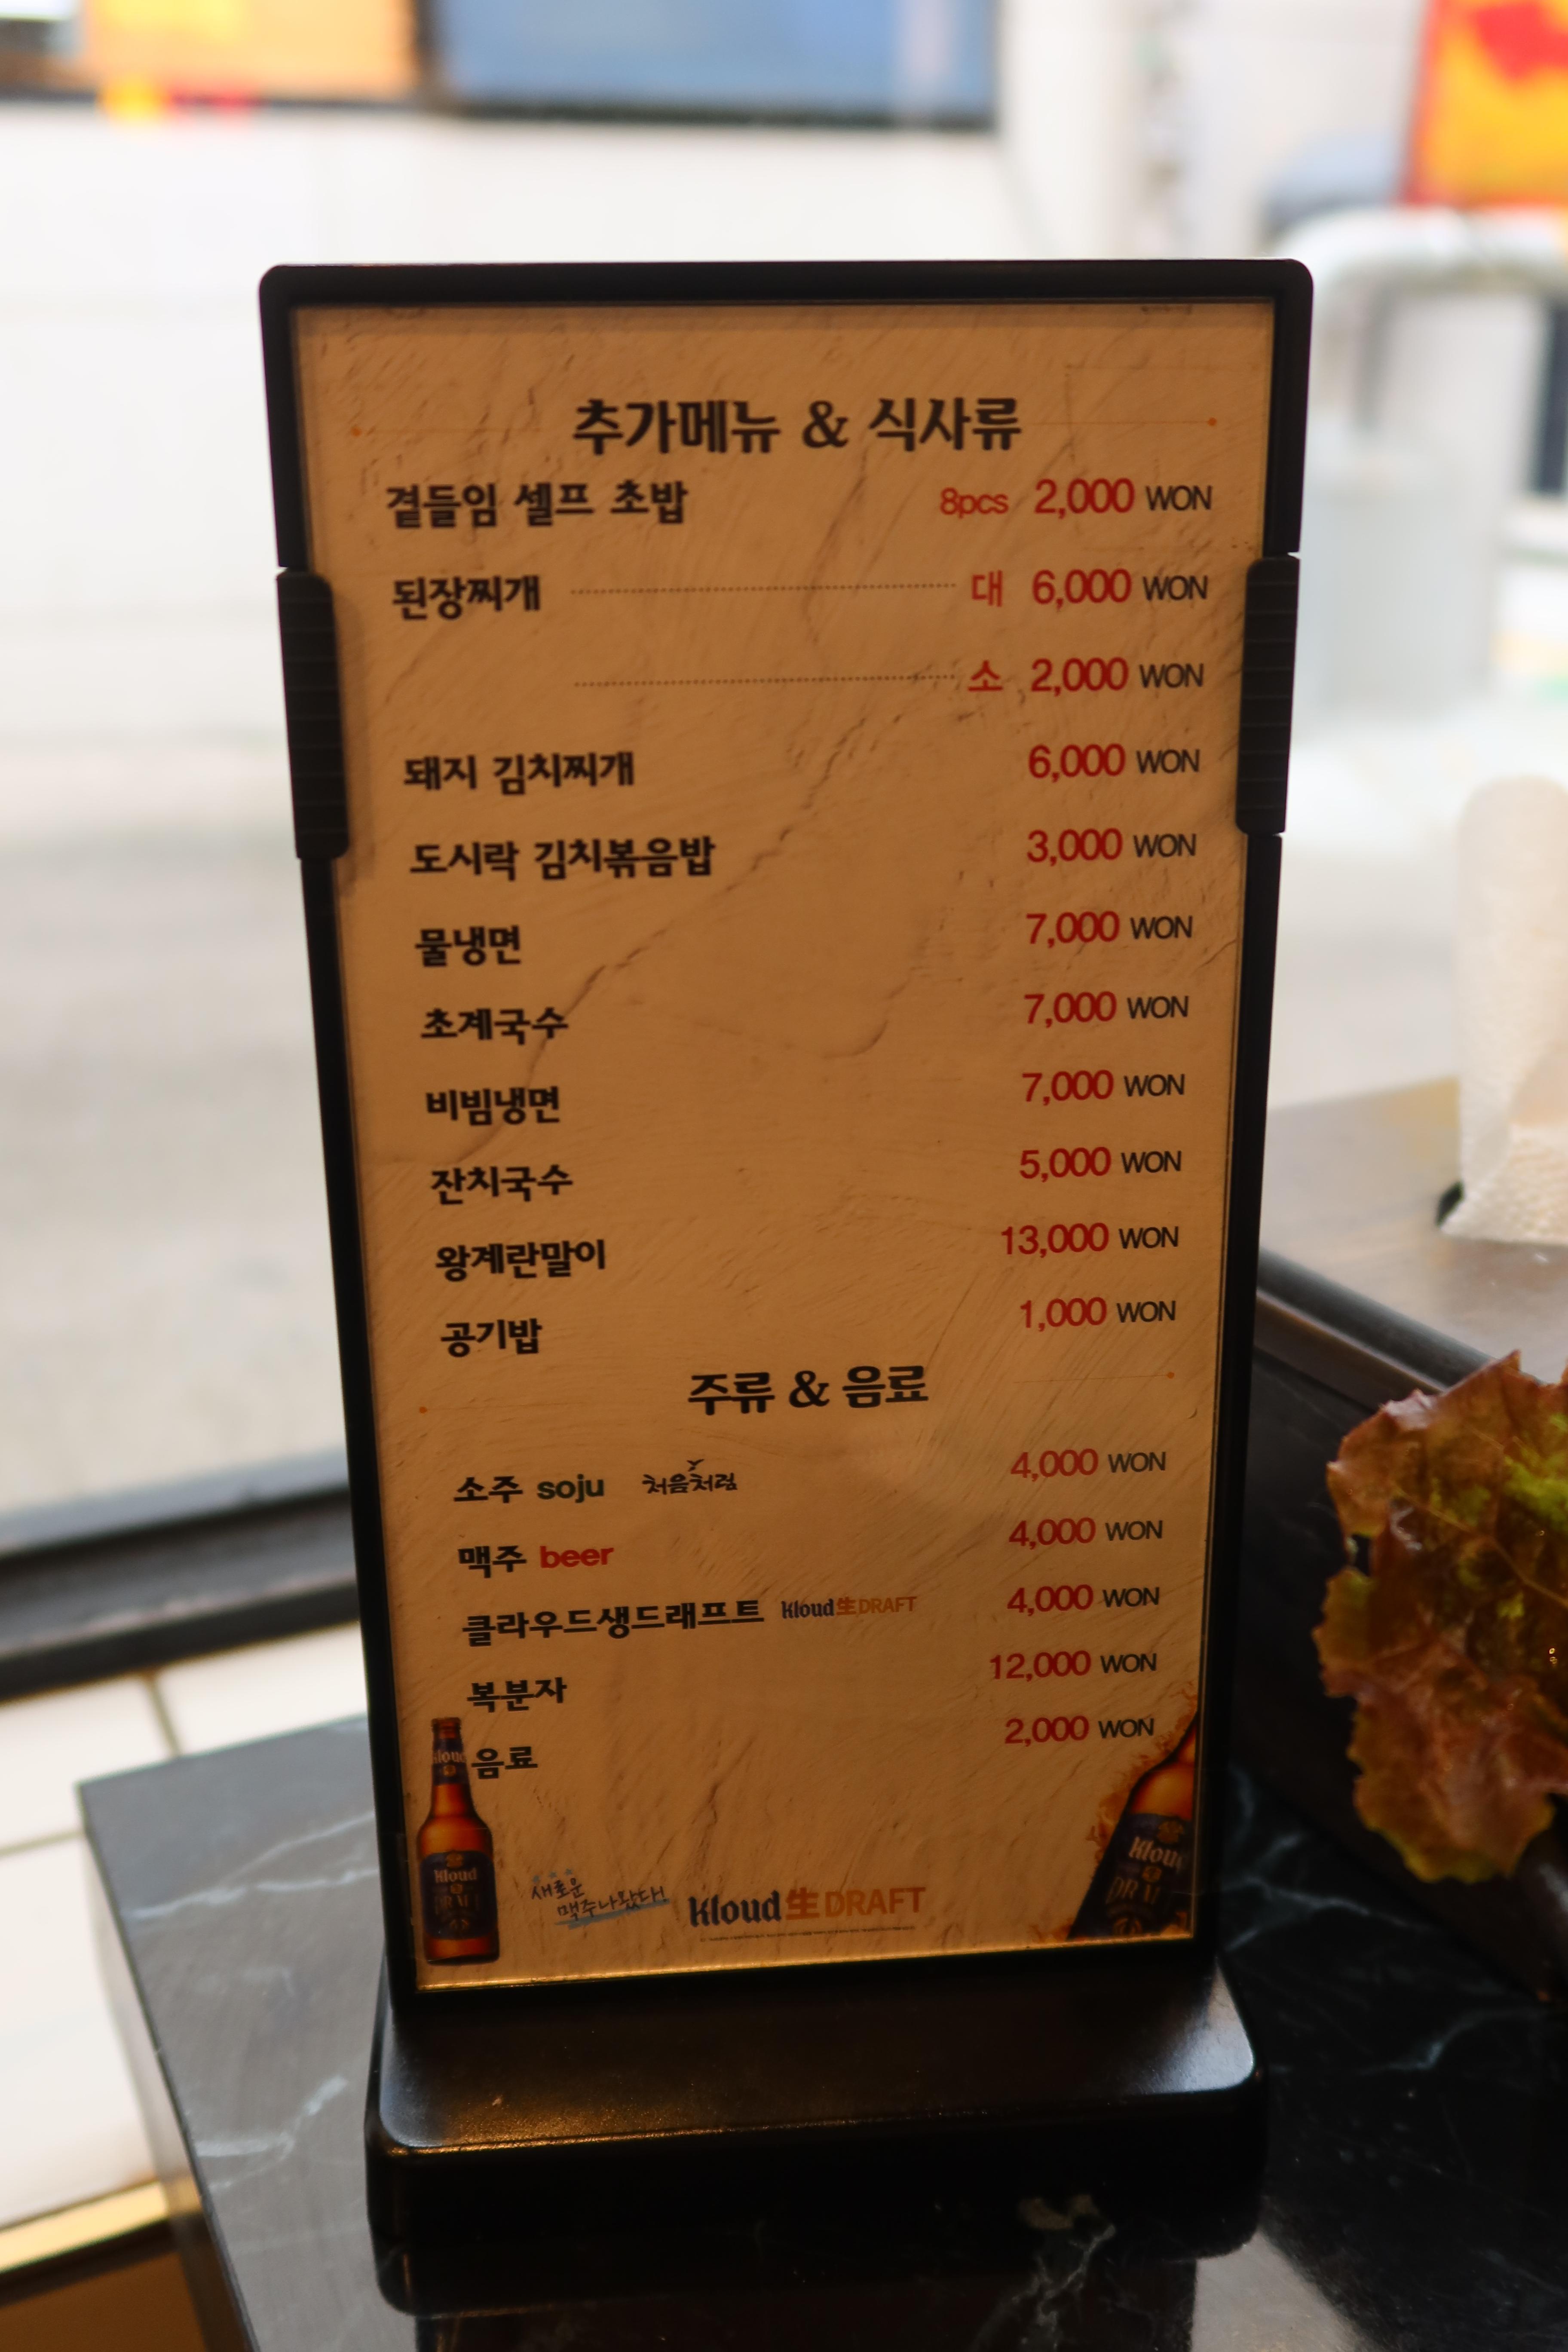 추가메뉴 & 식사류
곁들임 셀프 초밥 8pcs 2,000 WON
된장찌개 대 6,000 WON
소 2,000 WON
돼지 김치찌개 6,000 WON
도시락 김치볶음밥 3,000 WON
물냉면 7,000 WON
초계국수 7,000 WON
비빔냉면 7,000 WON
잔치국수 5,000 WON
왕계란말이 13,000 WON
공기밥 1,000 WON
주류 & 음료
소주 soju 처음처럼 4,000 WON
맥주 beer 4,000 WON
클라우드생드래프트 Kloud 生 DRAFT 4,000 WON
복분자 12,000 WON
음료 2,000 WON
Kloud
Kloud
DRAFT
새로운
맥주나왔다!
Kloud 生 DRAFT